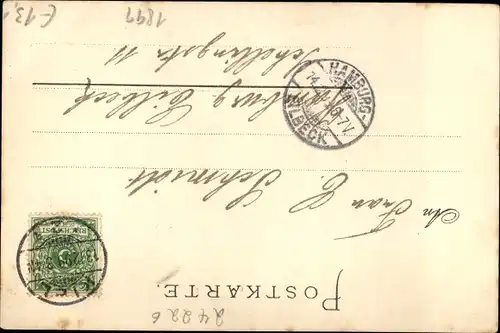 POSTKARTE.
An Frau C. Schmidt
Hamburg Eilbeck
Schellingstr 11
HAMBURG-
EILBECK
REICHSPOST
KIEL
1899
2422b